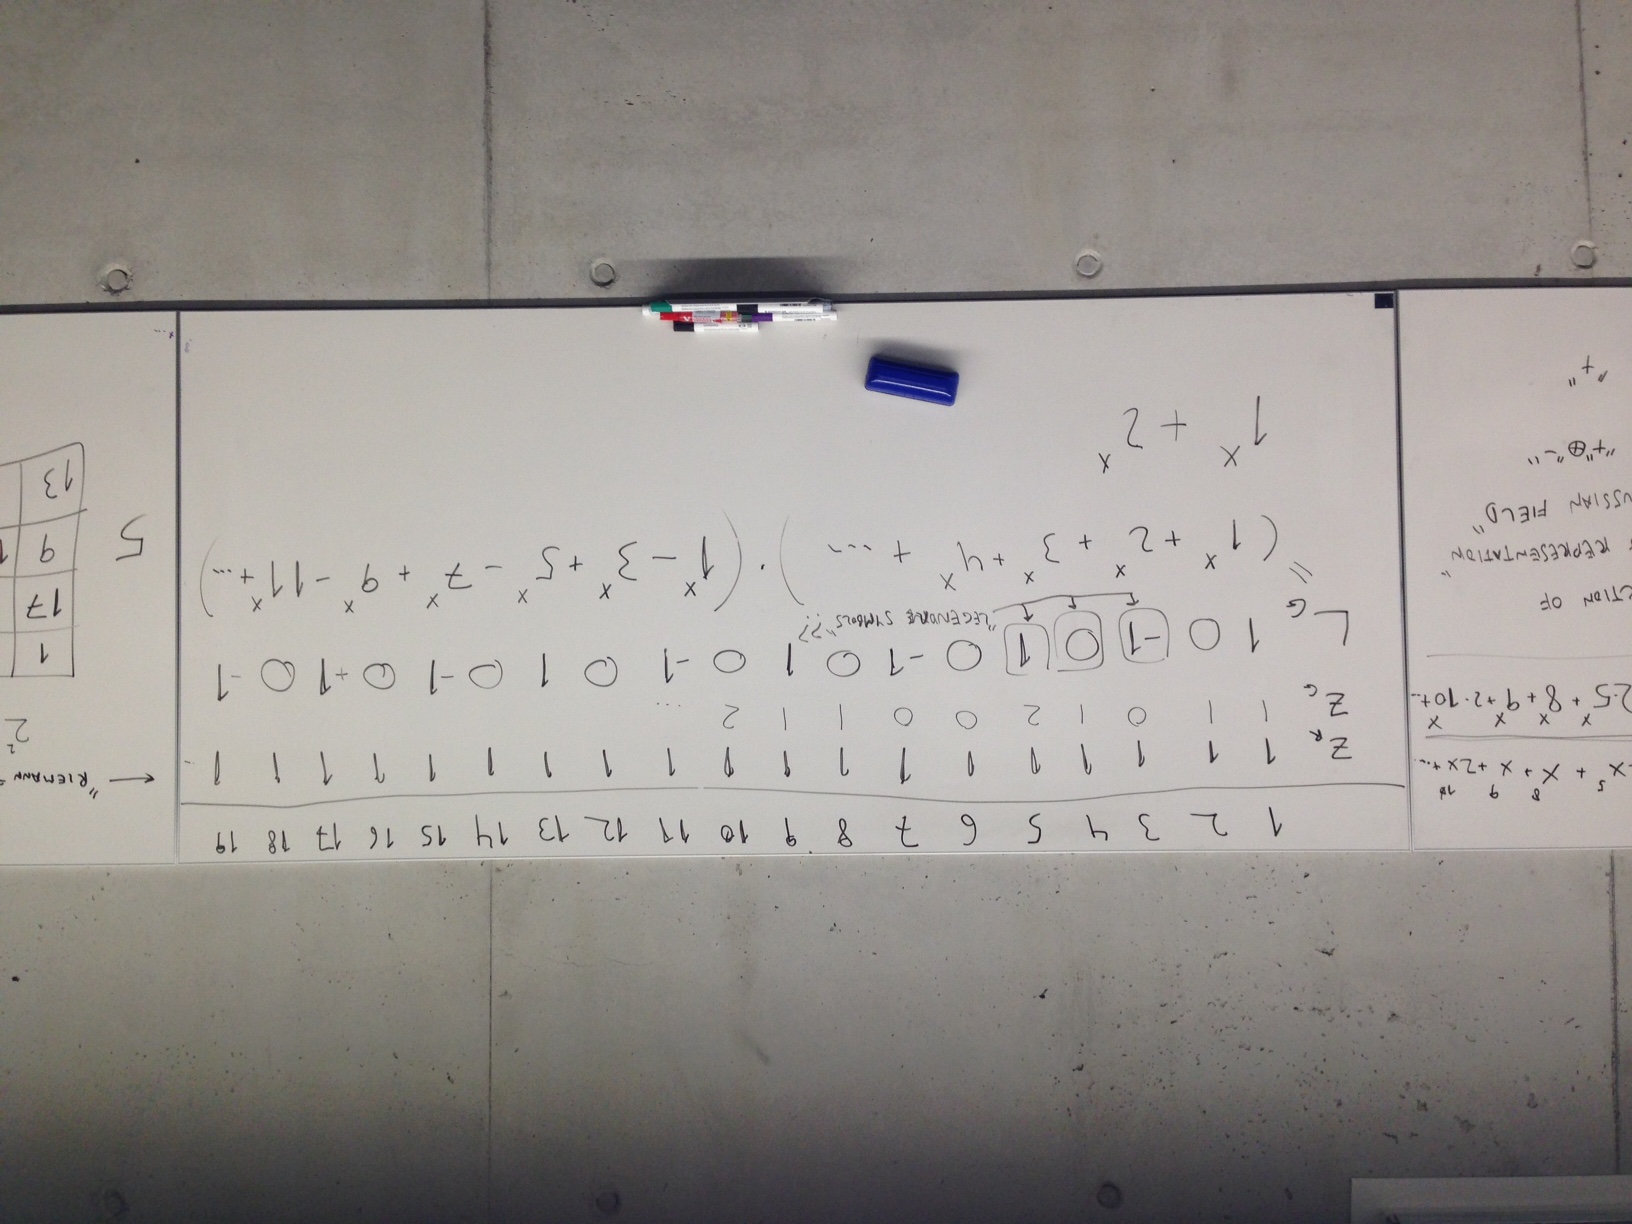 x⁵ + x⁸ + x⁹ + 2x¹⁰ + ...
2·5ˣ + 8ˣ + 9ˣ + 2·10ˣ + ...
CTION OF
REPRESENTATION"
USSIAN FIELD"
"+" ⊕ "-"
"+"
1 2 3 4 5 6 7 8 9 10 11 12 13 14 15 16 17 18 19
Z_R 1 1 1 1 1 1 1 1 1 1 1 1 1 1 1 1 1 1 1 ..
Z_G 1 1 0 1 2 0 0 1 1 2 ...
L_G 1 0 -1 0 1 0 -1 0 1 0 -1 0 1 0 -1 0 +1 0 -1
"LEGENDRE SYMBOLS"??
" (1ˣ + 2ˣ + 3ˣ + 4ˣ + ...) · (1ˣ - 3ˣ + 5ˣ - 7ˣ + 9ˣ - 11ˣ + ...)
1ˣ + 2ˣ
← "RIEMANN =
2²
1
17
5 9 1
13